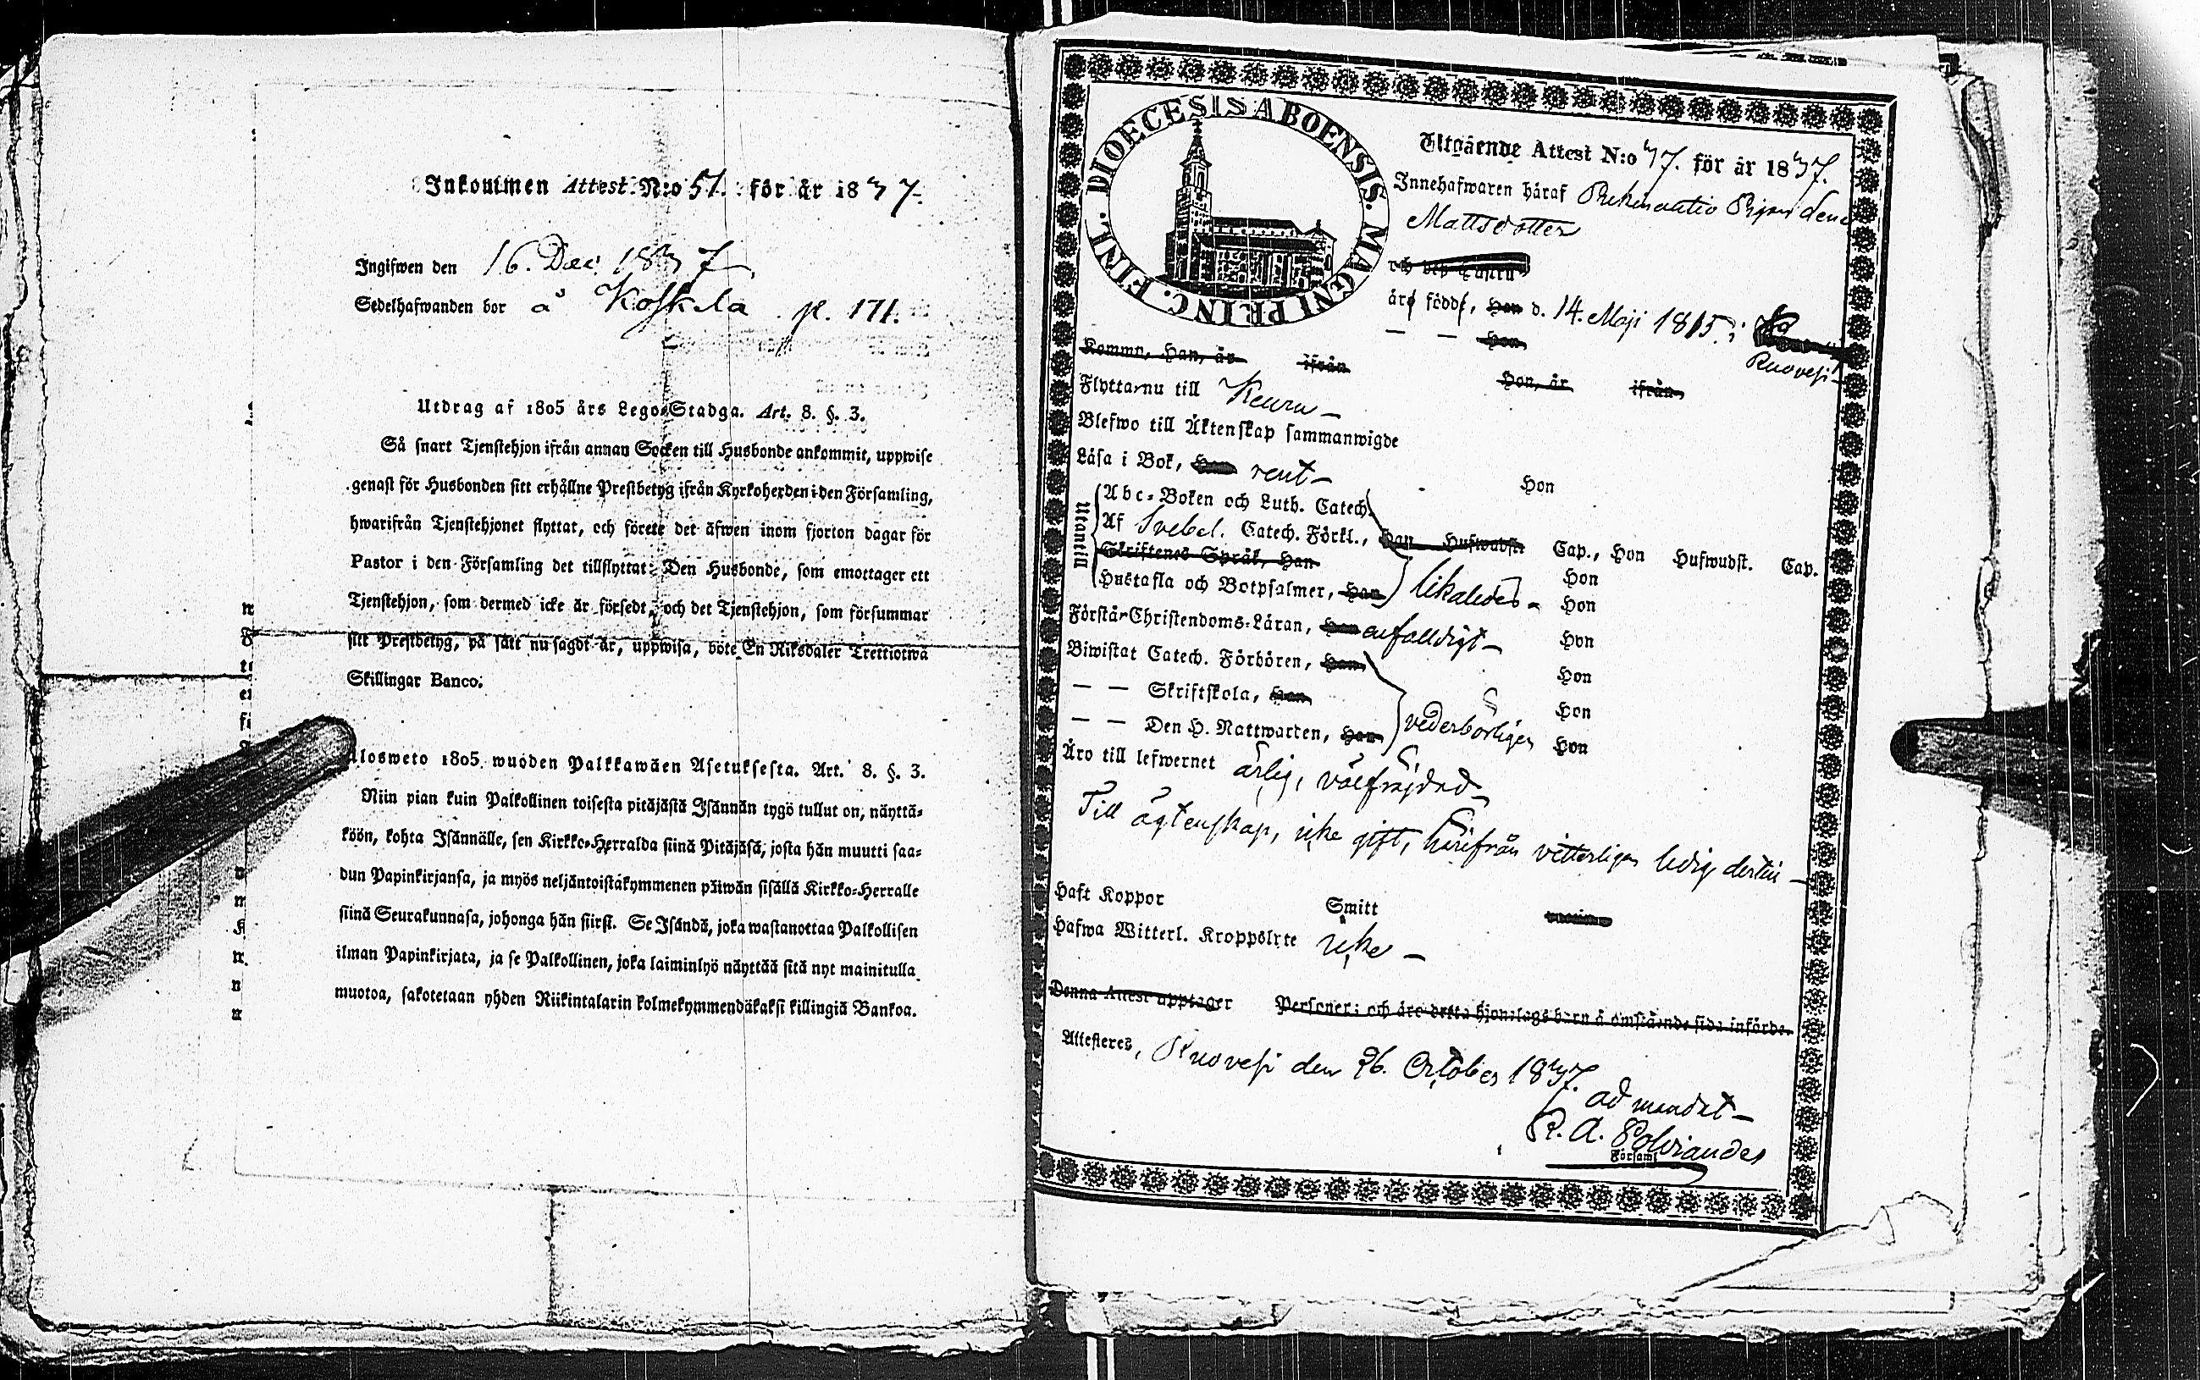 Inkommen Attest N:o 51. för år 1837.
Ingifwen den 16. Dec. 1837.
Sedelhafwanden bor å Koskela p. 171.
Utdrag af 1805 års Lego-Stadga. Art. 8. §. 3.
Så snart Tjenstehjon ifrån annan Socken till Husbonde ankommit, uppwise
genast för Husbonden sitt erhållne Prestbetyg ifrån Kyrkoherden i den Församling,
hwarifrån Tjenstehjonet flyttat, och förete det äfwen inom fjorton dagar för
Pastor i den Församling det tillflyttat. Den Husbonde, som emottager ett
Tjenstehjon, som dermed icke är försedt, och det Tjenstehjon, som försummar
sitt Prestbetyg, på sätt nu sagdt är, uppwisa, böte En Riksdaler Trettiotwå
Skillingar Banco.
Ulosweto 1805 wuoden Palkkawäen Asetuksesta. Art. 8. §. 3.
Niin pian kuin Palkollinen toisesta pitäjästä Isännän tygö tullut on, näyttä-
köön, kohta Isännälle, sen Kirkko-Herralda siinä Pitäjäsä, josta hän muutti saa-
dun Papinkirjansa, ja myös neljäntoistakymmenen päiwän sisällä Kirkko-Herralle
siinä Seurakunnasa, johonga hän siirsi. Se Isändä, joka wastanottaa Palkollisen
ilman Papinkirjata, ja se Palkollinen, joka laiminlyö näyttää sitä nyt mainitulla
muotoa, sakotetaan yhden Riikintalarin kolmekymmendäkaksi killingiä Bankoa.
DIOECESIS ABOENSIS. MAGNI PRINC. FINL.
Utgående Attest N:o 37. för år 1837.
Innehafwaren häraf Pigan
Mattsdotter
och dess Hustru
äro födde, Han d. 14. Maji 1815. i
— — Hon
Ruovesi
Kommo, Han, år ifrån Hon, år ifrån
Flytta nu till Keuru
Blefwo till Äktenskap sammanwigde
Läsa i Bok, Han rent Hon
Utantill
Abc-Boken och Luth. Catech.
Af Svebel. Catech. Förkl., Han Hufwudst. Cap., Hon Hufwudst. Cap.
Skriftenes Språk, Han Hon
Hustafla och Botpsalmer, Han likaledes Hon
Förstår Christendoms-Läran, Han enfalldigt Hon
Biwistat Catech. Förhören, Han Hon
— — Skriftskola, Han Hon
— — Den H. Nattwarden, Han vederbörligen Hon
Äro till lefwernet ärlig, välfräjdad
Till ägtenskap, icke gift, härifrån vitterligen ledig dertill
Haft Koppor Smitt
Hafwa Witterl. Kroppslyte icke
Denna Attest upptager Personer; och äro detta hjonelags barn å omstående sida införde.
Attesteres, Ruovesi den 26. October 1837.
ad mandat
Församl.